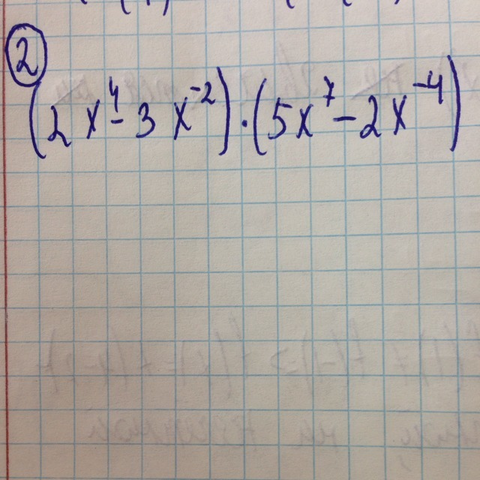 ②
(2x⁴-3x⁻²)·(5x⁷-2x⁻⁴)